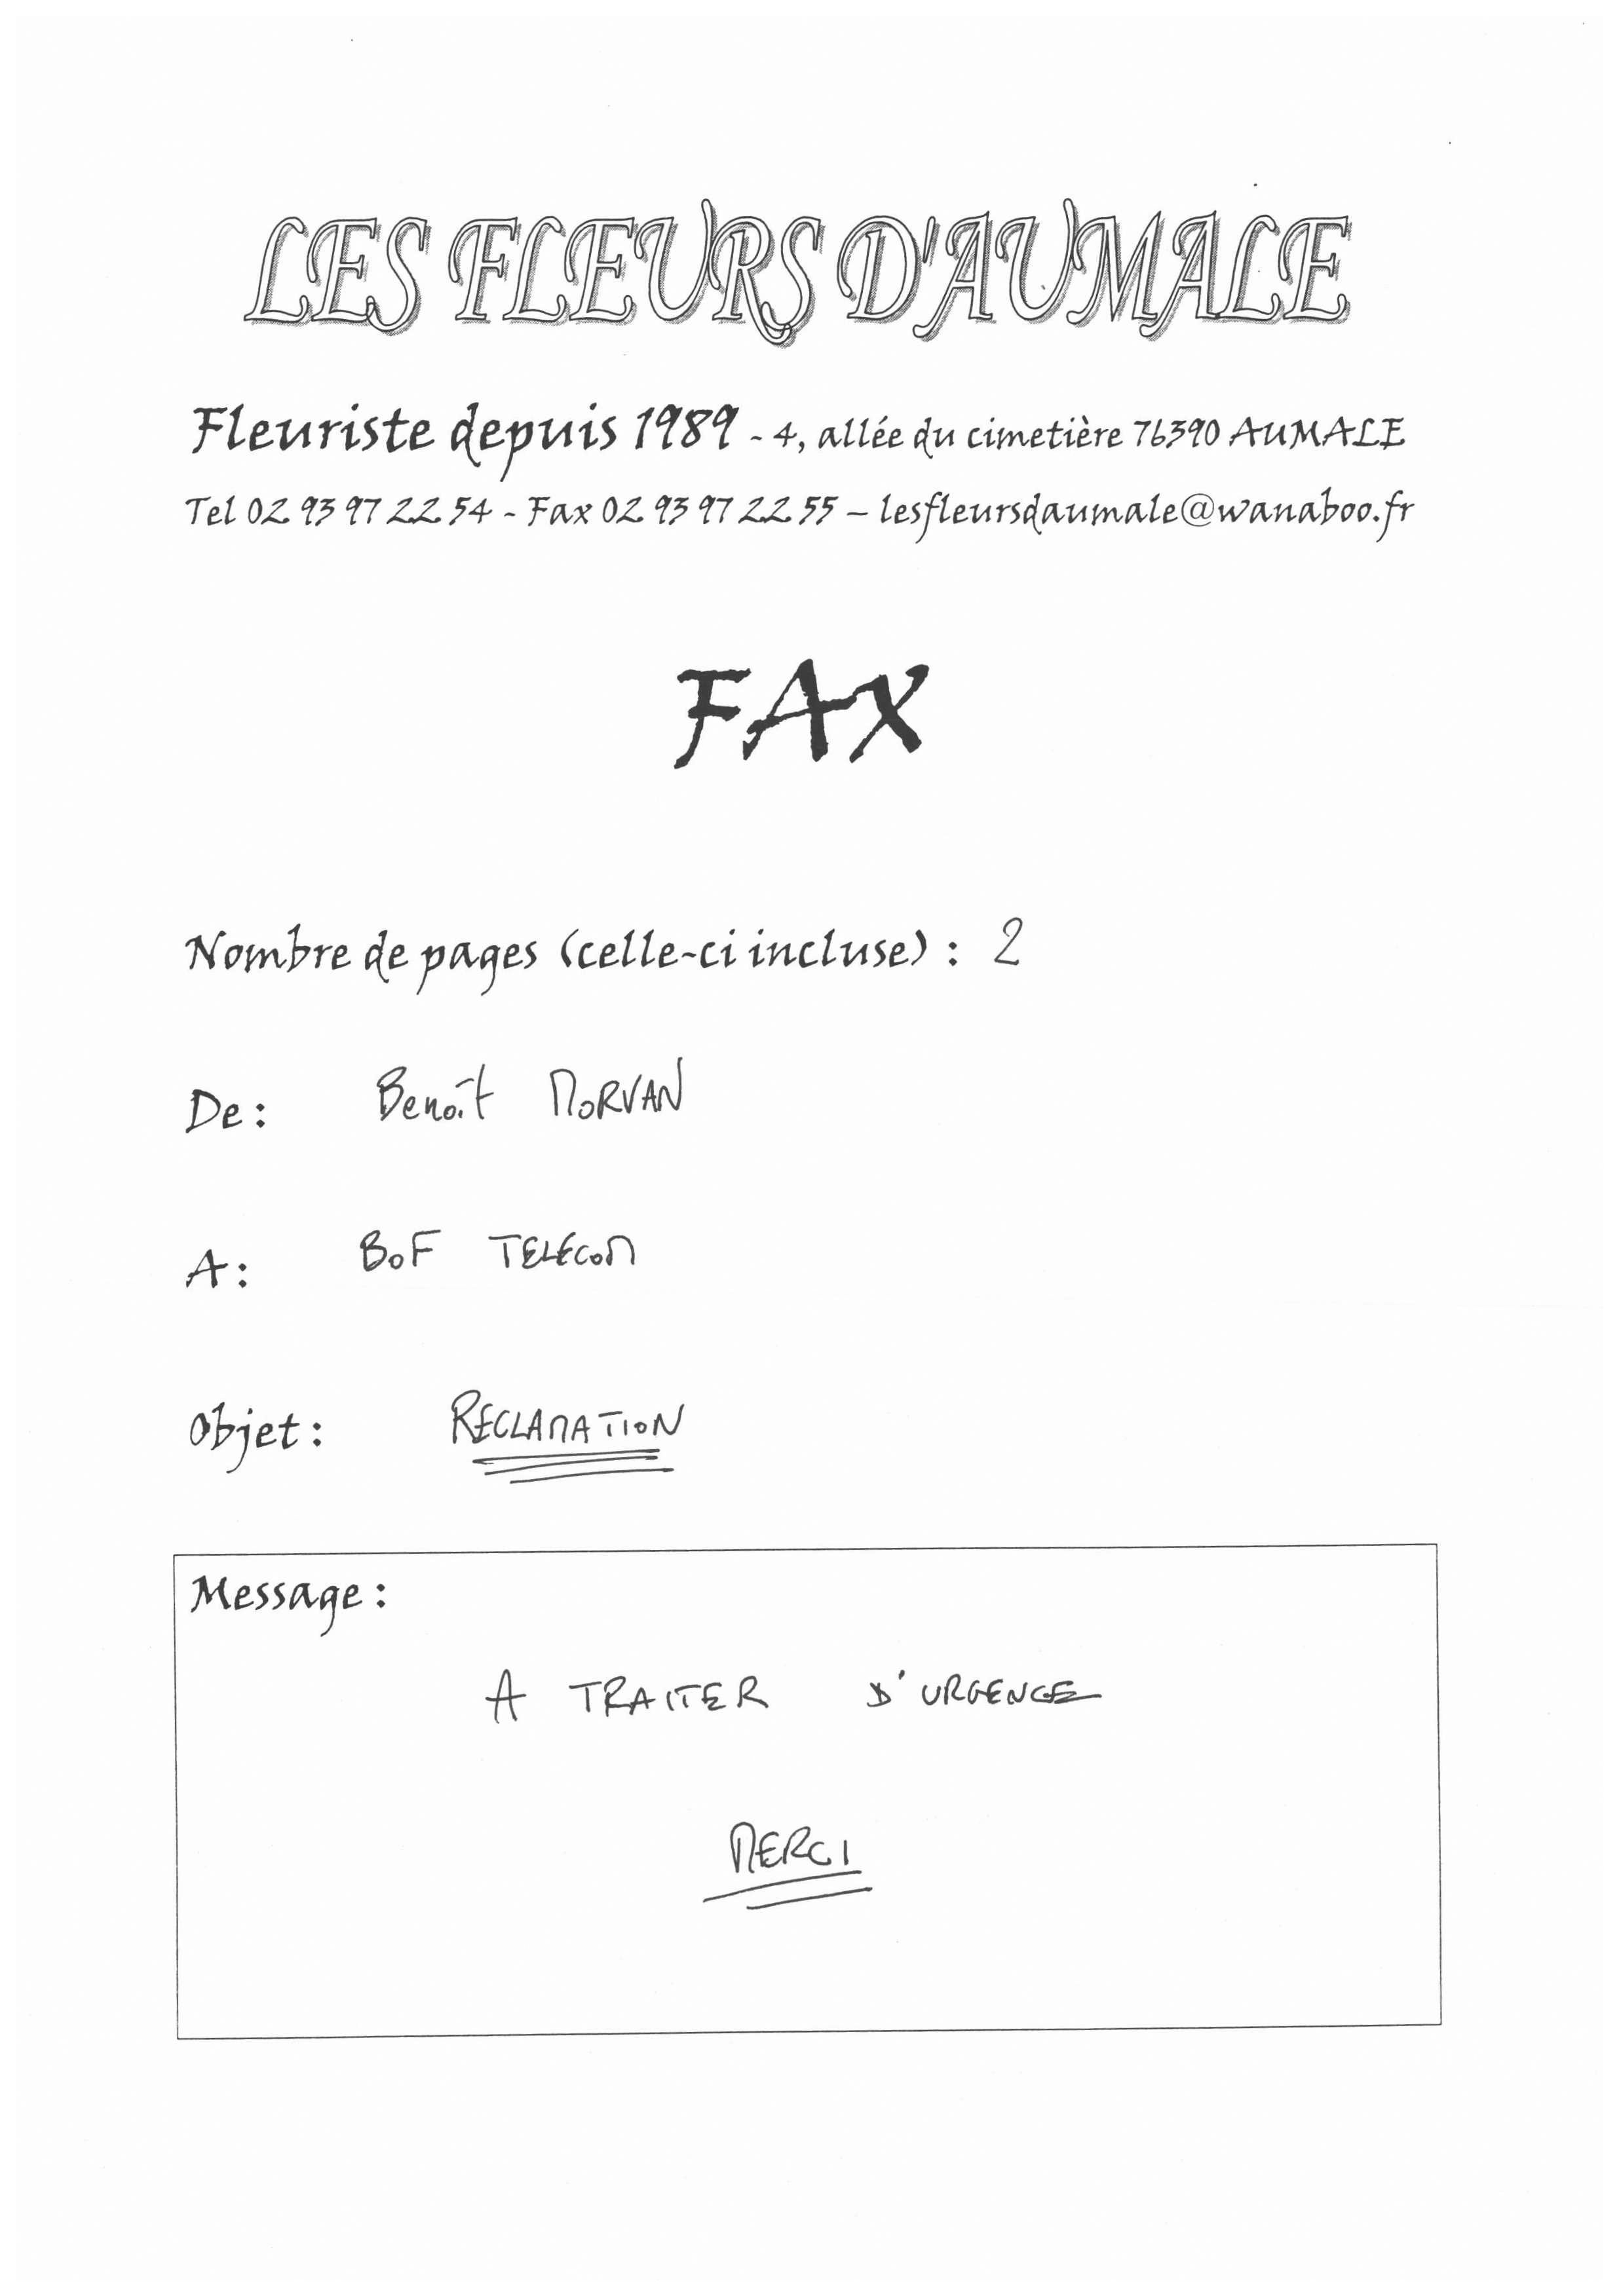 LES FLEURS D'AUMALE
Fleuriste depuis 1989 - 4, allée du cimetière 76390 AUMALE
Tel 02 93 97 22 54 - Fax 02 93 97 22 55 – lesfleursdaumale@wanaboo.fr
FAX
Nombre de pages (celle-ci incluse) : 2
De : Benoît MORVAN
A : BOF TELECOM
Objet : RECLAMATION
Message :
A TRAITER D'URGENCE
MERCI